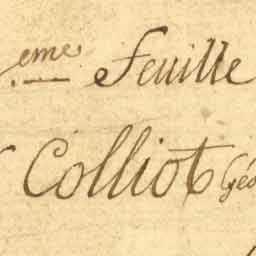 eme Feuille
Colliot Géo